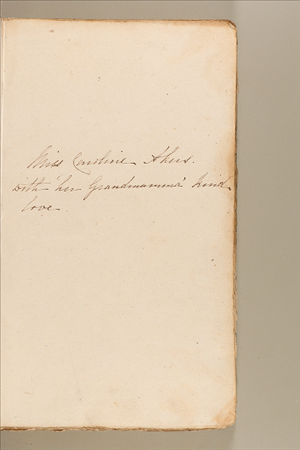 Miss Caroline Akers.
with her Grandmamma's kind
love.